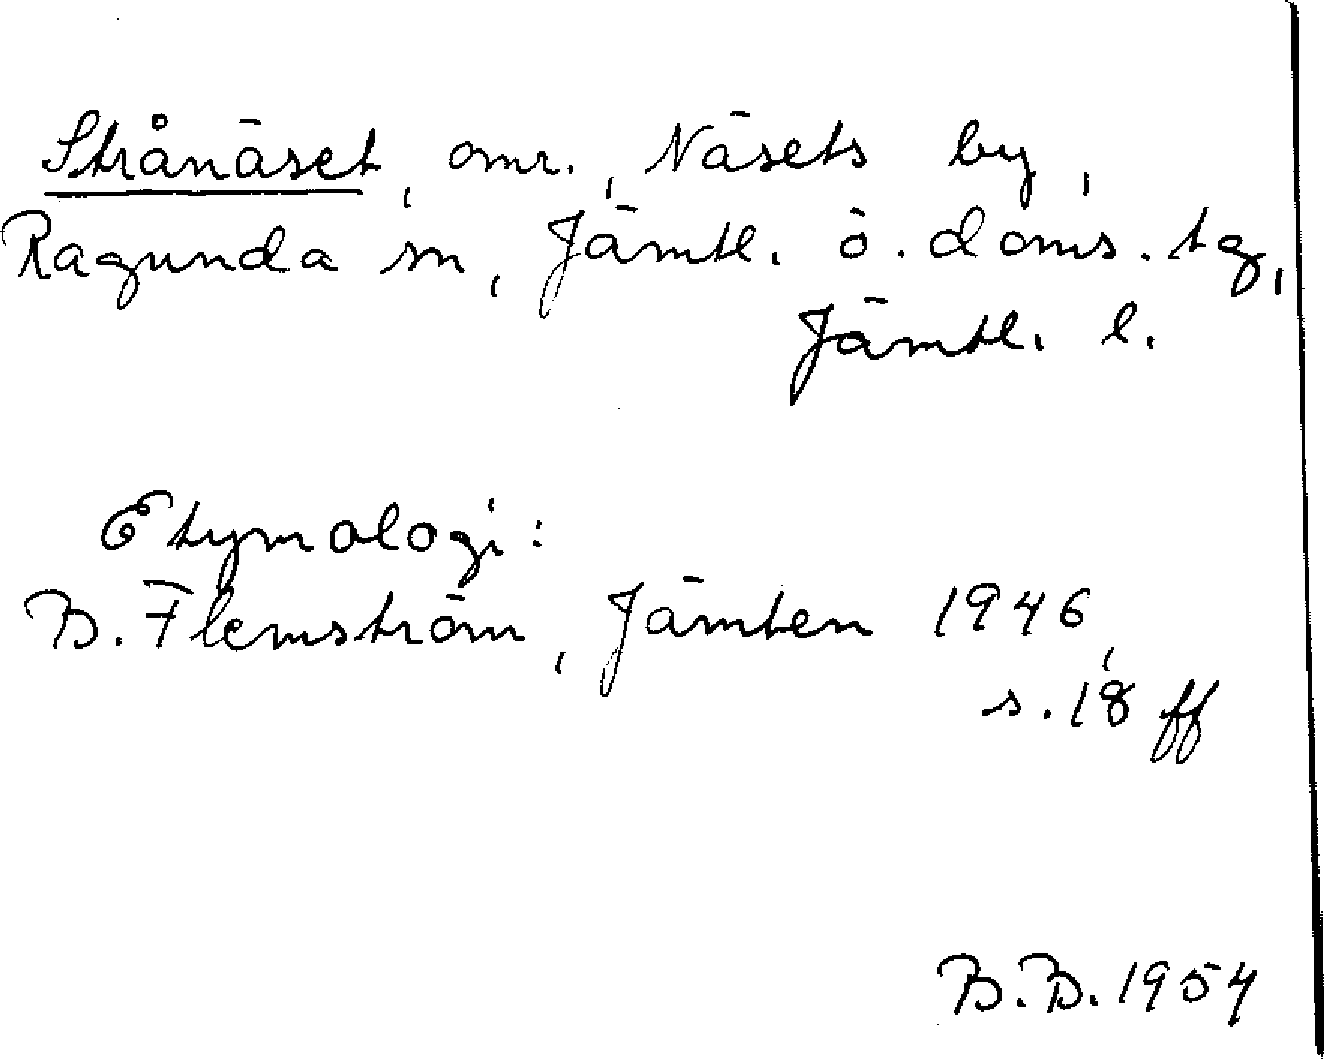 Strånäset, omr., Näsets by,
Ragunda sn, Jämtl. ö. doms. tg,
Jämtl. l.
Etymologi:
B. Flemström, Jämten 1946,
s. 18 ff
B.B. 1954